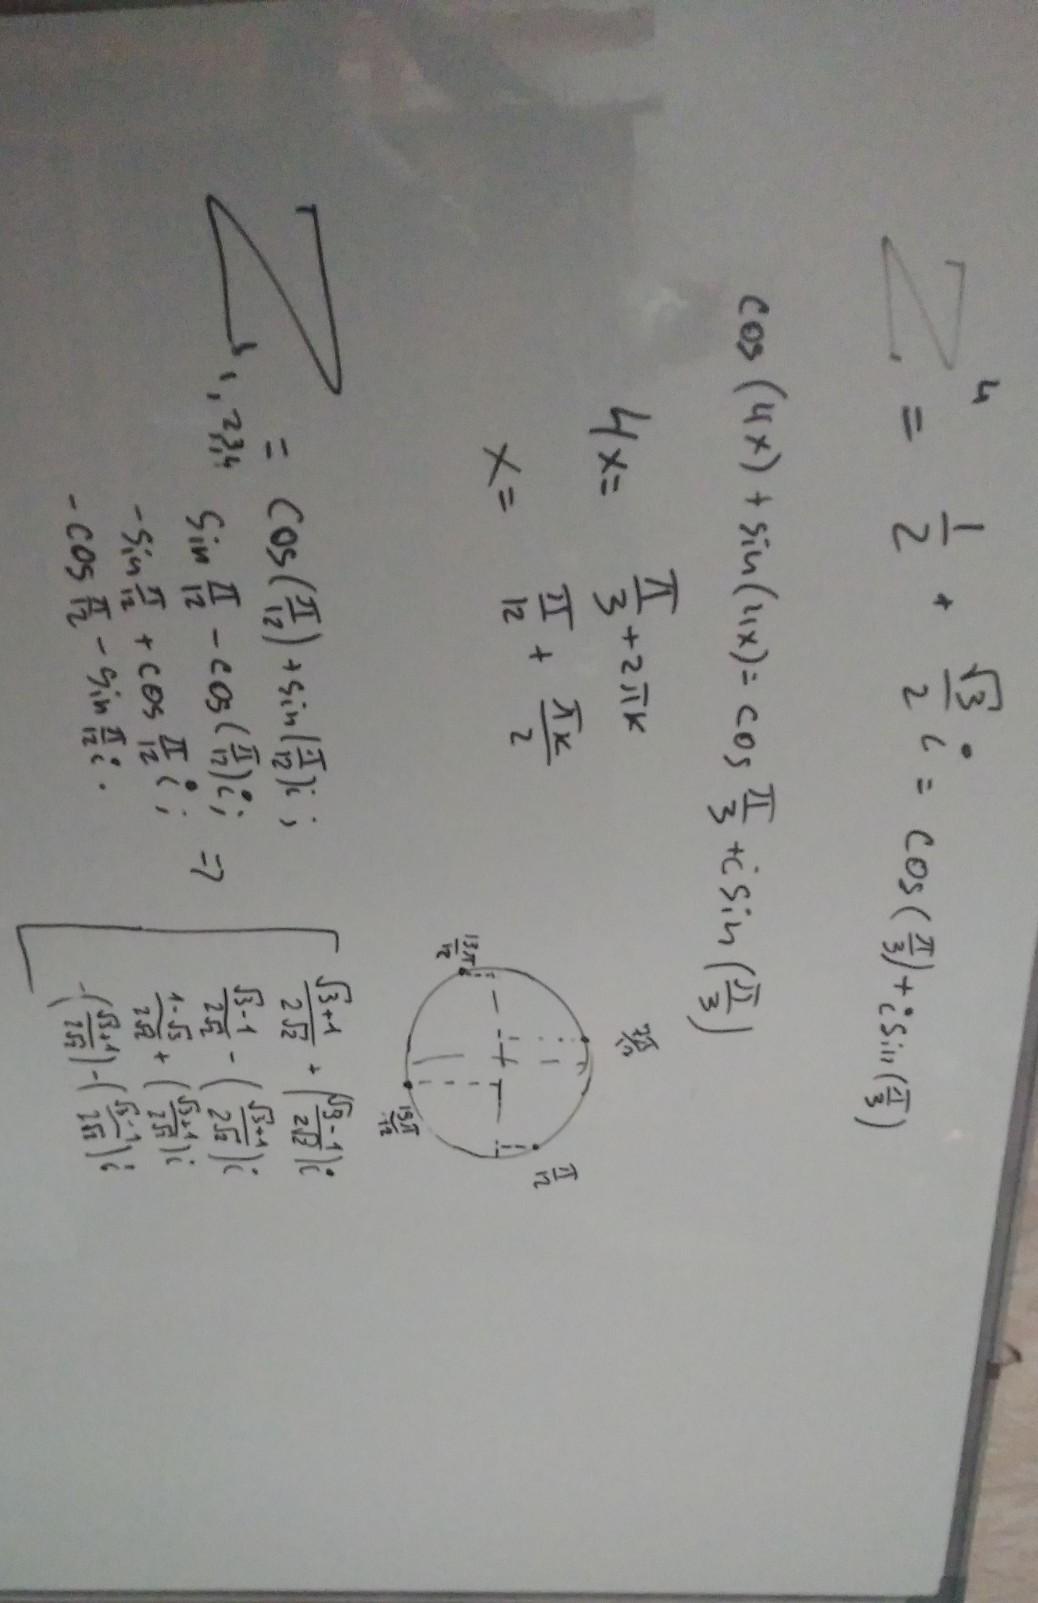 Z⁴ = 1/2 + √3/2 i = cos(π/3) + i sin(π/3)
cos(4x) + sin(4x) = cos π/3 + i sin(π/3)
4x = π/3 + 2πk
x = π/12 + πk/2
7π/12
π/12
13π/12
19π/12
Z₁,₂,₃,₄ = cos(π/12) + sin(π/12)i;
sin π/12 - cos(π/12)i; =>
-sin π/12 + cos π/12 i;
-cos π/12 - sin π/12 i.
(√3+1)/(2√2) + ((√3-1)/(2√2))i
(√3-1)/(2√2) - ((√3+1)/(2√2))i
(1-√3)/(2√2) + ((√3+1)/(2√2))i
-((√3+1)/(2√2)) - ((√3-1)/(2√2))i